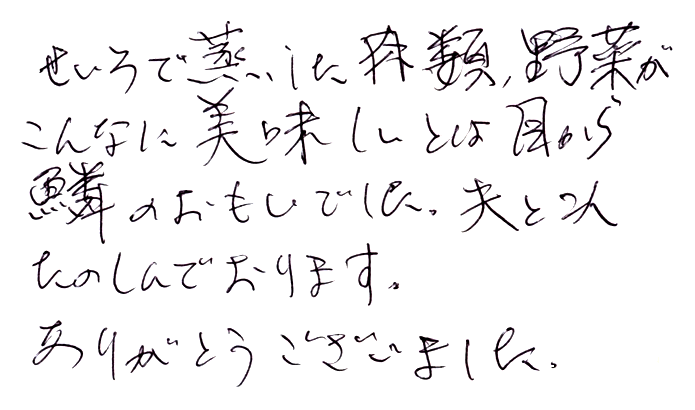 せいろで蒸した肉類、野菜が
こんなに美味しいとは目から
鱗のおもいでした。夫と2人
たのしんでおります。
ありがとうございました。